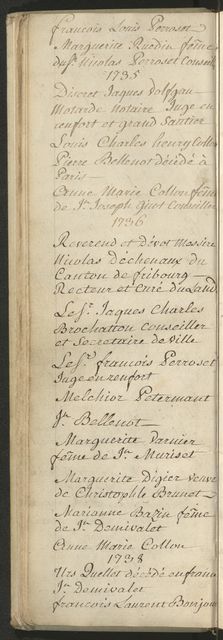 françois Louis Perroset
Marguerite Ruedin feme
du Sr. Nicolas Perroset Conseil
1735
Discret Jaques Wolfgan
Motarde Notaire Juge en
renfort et grand Sautier
Louis Charles henry Collon
Pierre Bellenot décédé à
Paris
Anne Marie Collon feme
de Sr. Joseph Conseiller
1736
Reverend et dévot Messire
Nicolas Dechenaux du
Canton de fribourg
Recteur et Curé du Land
Le Sr. Jaques Charles
Brochatton Conseiller
et Secretaire de Ville
Le Sr. françois Perroset
Juge en renfort
Melchior Petermant
Jn. Bellenot
Marguerite Varnier
feme de Jn. Muriset
Marguerite Digier veuve
de Christophle Brunet
Marianne Bazin feme
de Jn. Demivalet
Anne Marie Collon
1738
Urs Quellet décédé en france
Jn. Demivalet
françois Laurent Bonjour